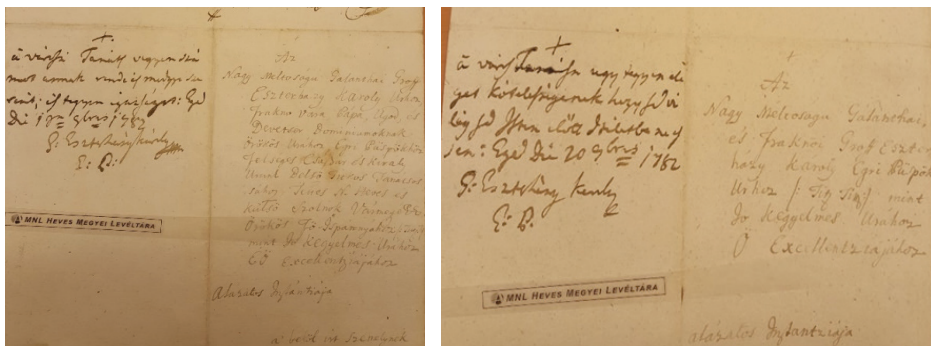 a városi Tanáts vegyen szá
mot annak rende
szerint; és tegyen igazságot: Eger
Die 1 9bris 1782
G: Eszterházy Károly
E: P:
MNL HEVES MEGYEI LEVÉLTÁRA
Az
Nagy Méltoságu Galanthai Groff
Eszterházy Karoly Urhoz,
Frakno Vára, Pápa, Ugod, és
Devetser Dominiumoknak
Örökös Urához Egri Püspökhöz
Felséges Császár és Királyi
Urunk Belső Titkos Tanácsosá
hoz Nemes Heves és
Külső Szolnok Vármegyék
Örökös Fő Ispánnyához
mint Jo Kegyelmes Urához
Eő Excellentziájához
Alázatos Instántiája
a belől irt Szemelynek
a városi Tanáts ugy tegyen ele
get kötelességének hogy se vi
lág se Isten előtt
Eger Die 20 9bris 1782
G: Eszterházy Károly
E: P:
MNL HEVES MEGYEI LEVÉLTÁRA
Az
Nagy Méltoságu Galánthai,
és Fraknoi Groff Eszter
házy Karoly Egri Püspök
Urhoz mint
Jo Kegyelmes Urához
Ő Excellentziájához
alázatos Instantziája